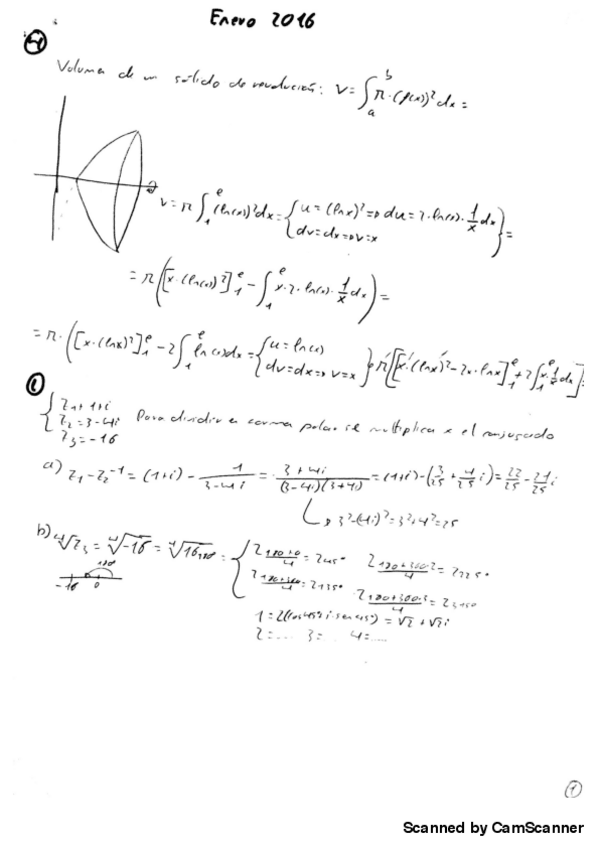 Enero 2016
4
Volumen de un sólido de revolución: V = ∫_a^b π·(f(x))² dx =
V = π ∫_1^e (ln(x))² dx = { u = (ln x)² ⇒ du = 2·ln(x)·1/x dx
dv = dx ⇒ v = x } =
= π ( [x·(ln(x))²]_1^e − ∫_1^e x·2·ln(x)·1/x dx ) =
= π·( [x·(ln x)²]_1^e − 2 ∫_1^e ln(x) dx = { u = ln(x)
dv = dx ⇒ v = x } π ( [x·(ln x)² − 2x·ln x]_1^e + 2 ∫_1^e x·1/x dx ) =
1
{ z₁ = 1+i
z₂ = 3−4i Para dividir en forma polar se multiplica x el conjugado
z₃ = −16
a) z₁ − z₂⁻¹ = (1+i) − 1/(3−4i) = (3+4i)/((3−4i)(3+4i)) = (1+i) − (3/25 + 4/25 i) = 22/25 − 21/25 i
3² − (4i)² = 3² + 4² = 25
b) ⁴√z₃ = ⁴√−16 = ⁴√16₁₈₀° = { 2_(180+0)/4 = 2₄₅° 2_(180+360·2)/4 = 2₂₂₅°
2_(180+360)/4 = 2₁₃₅° 2_(180+360·3)/4 = 2₃₁₅°
180
-16 0
1 = 2(cos45° i·sen45°) = √2 + √2 i
2 = .... 3 = ... 4 = ....
1
Scanned by CamScanner